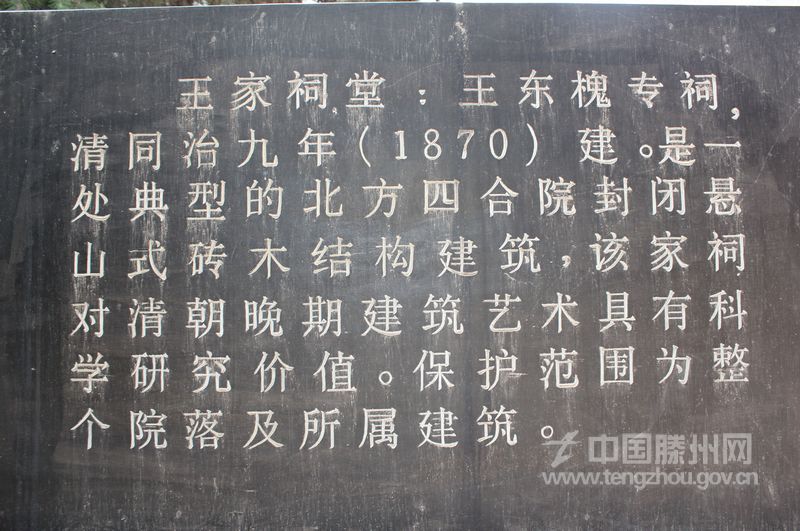 王家祠堂：王东槐专祠，
清同治九年（1870）建。是一
处典型的北方四合院封闭悬
山式砖木结构建筑，该家祠
对清朝晚期建筑艺术具有科
学研究价值。保护范围为整
个院落及所属建筑。
中国滕州网
www.tengzhou.gov.cn